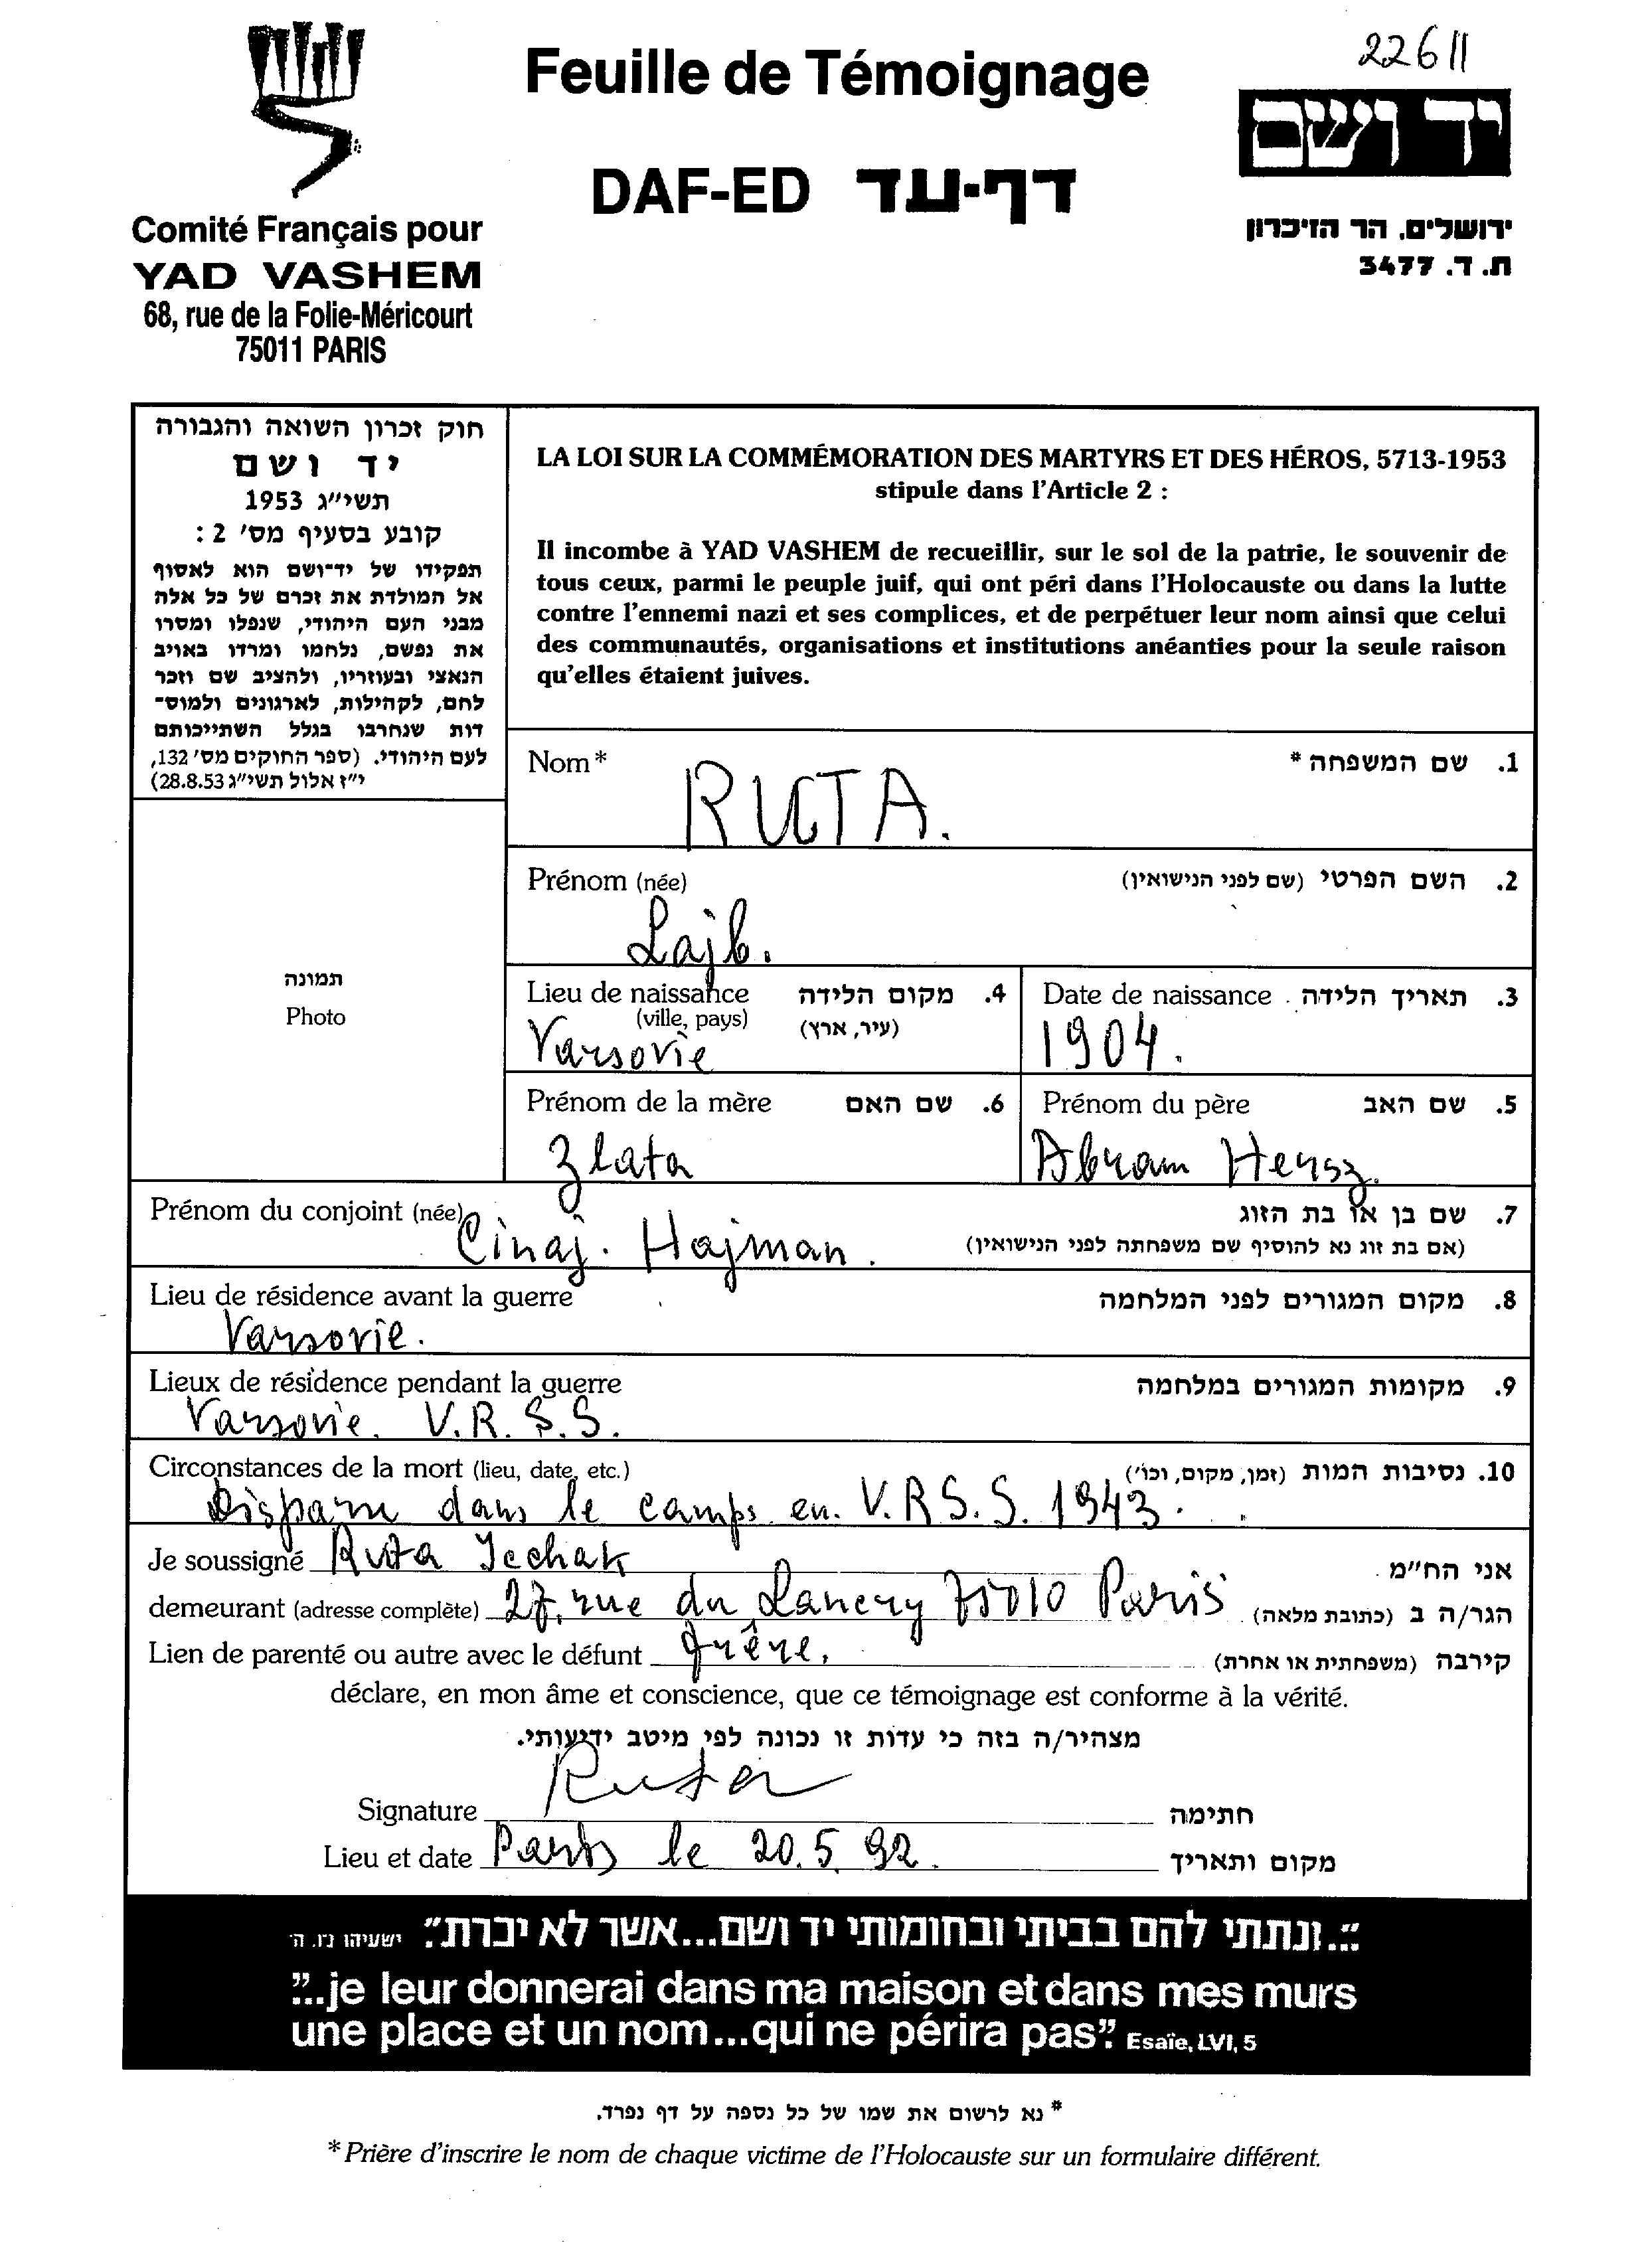 22611
Feuille de Témoignage
יד ושם
DAF-ED דף-עד
Comité Français pour
YAD VASHEM
68, rue de la Folie-Méricourt
75011 PARIS
ירושלים, הר הזיכרון
ת. ד. 3477
חוק זכרון השואה והגבורה
יד ושם
תשי״ג 1953
קובע בסעיף מס׳ 2 :
תפקידו של יד־ושם הוא לאסוף
אל המולדת את זכרם של כל אלה
מבני העם היהודי, שנפלו ומסרו
את נפשם, נלחמו ומרדו באויב
הנאצי ובעוזריו, ולהציב שם וזכר
להם, לקהילות, לארגונים ולמוס־
דות שנחרבו בגלל השתייכותם
לעם היהודי. (ספר החוקים מס׳ 132,
י״ז אלול תשי״ג 28.8.53)
LA LOI SUR LA COMMÉMORATION DES MARTYRS ET DES HÉROS, 5713-1953
stipule dans l'Article 2 :
Il incombe à YAD VASHEM de recueillir, sur le sol de la patrie, le souvenir de
tous ceux, parmi le peuple juif, qui ont péri dans l'Holocauste ou dans la lutte
contre l'ennemi nazi et ses complices, et de perpétuer leur nom ainsi que celui
des communautés, organisations et institutions anéanties pour la seule raison
qu'elles étaient juives.
תמונה
Photo
Nom* 1. שם המשפחה *
RUTA.
Prénom (née) 2. השם הפרטי (שם לפני הנישואין)
Lajb.
Lieu de naissance 4. מקום הלידה
(ville, pays) (עיר, ארץ)
Varsovie
Date de naissance 3. תאריך הלידה
1904.
Prénom de la mère 6. שם האם
Zlata
Prénom du père 5. שם האב
Abram Hersz.
Prénom du conjoint (née) 7. שם בן או בת הזוג
Cinaj. Hajman. (אם בת זוג נא להוסיף שם משפחתה לפני הנישואין)
Lieu de résidence avant la guerre 8. מקום המגורים לפני המלחמה
Varsovie.
Lieux de résidence pendant la guerre 9. מקומות המגורים במלחמה
Varsovie. V.R.S.S.
Circonstances de la mort (lieu, date, etc.) 10. נסיבות המות (זמן, מקום, וכו׳)
Disparu dans le camps en. V.R.S.S. 1943.
Je soussigné Ruta Jechak אני הח״מ
demeurant (adresse complète) 27, rue du Lancry 75010 Paris הגר/ה ב (כתובת מלאה)
Lien de parenté ou autre avec le défunt frère. קירבה (משפחתית או אחרת)
déclare, en mon âme et conscience, que ce témoignage est conforme à la vérité.
מצהיר/ה בזה כי עדות זו נכונה לפי מיטב ידיעותי.
Signature Ruta חתימה
Lieu et date Paris le 20.5.92. מקום ותאריך
"...ונתתי להם בביתי ובחומותי יד ושם...אשר לא יכרת". ישעיהו נ״ו, ה׳
"...je leur donnerai dans ma maison et dans mes murs
une place et un nom...qui ne périra pas". Esaïe, LVI, 5
* נא לרשום את שמו של כל נספה על דף נפרד.
* Prière d'inscrire le nom de chaque victime de l'Holocauste sur un formulaire différent.